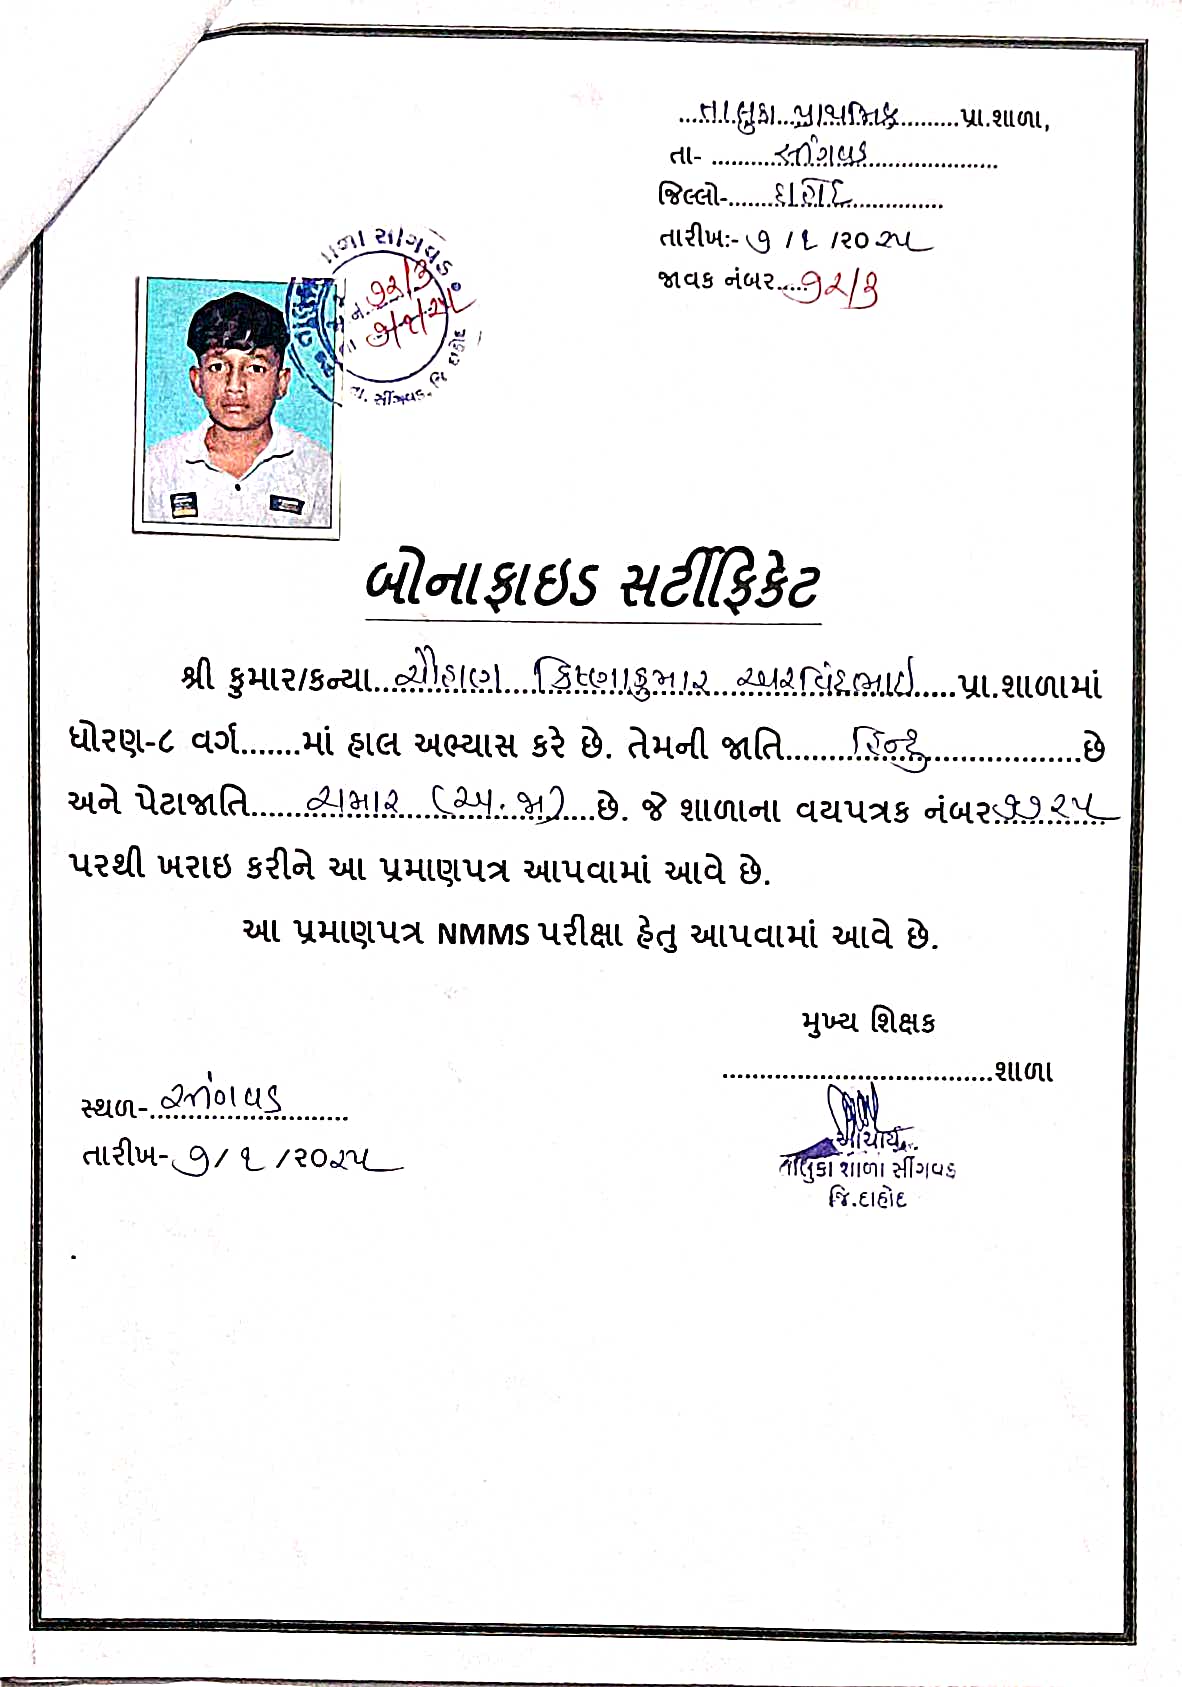 ....તાલુકા પ્રાથમિક.........પ્રા.શાળા,
તા- ..........સીંગવડ....................
જિલ્લો-.......દાહોદ...............
તારીખ:- ૭ / ૧ /૨૦ ૨૫
જાવક નંબર.....૧૨/૩
શાળા સીંગવડ
નં. ૧૨/૩
તા ૭/૧/૨૫
તા. સીંગવડ. જિ દાહોદ
બોનાફાઇડ સર્ટીફિકેટ
શ્રી કુમાર/કન્યા...ચૌહાણ ક્રિષ્ણાકુમાર અરવિંદભાઇ.....પ્રા.શાળામાં
ધોરણ-૮ વર્ગ.......માં હાલ અભ્યાસ કરે છે. તેમની જાતિ.........હિન્દુ....................છે
અને પેટાજાતિ.......ચમાર (અ.જા)....છે. જે શાળાના વયપત્રક નંબર..૧૧૨૫
પરથી ખરાઇ કરીને આ પ્રમાણપત્ર આપવામાં આવે છે.
આ પ્રમાણપત્ર NMMS પરીક્ષા હેતુ આપવામાં આવે છે.
મુખ્ય શિક્ષક
...................................શાળા
સ્થળ-..સીંગવડ.........
તારીખ- ૭ / ૧ /૨૦૨૫
આચાર્ય
તાલુકા શાળા સીંગવડ
જિ.દાહોદ